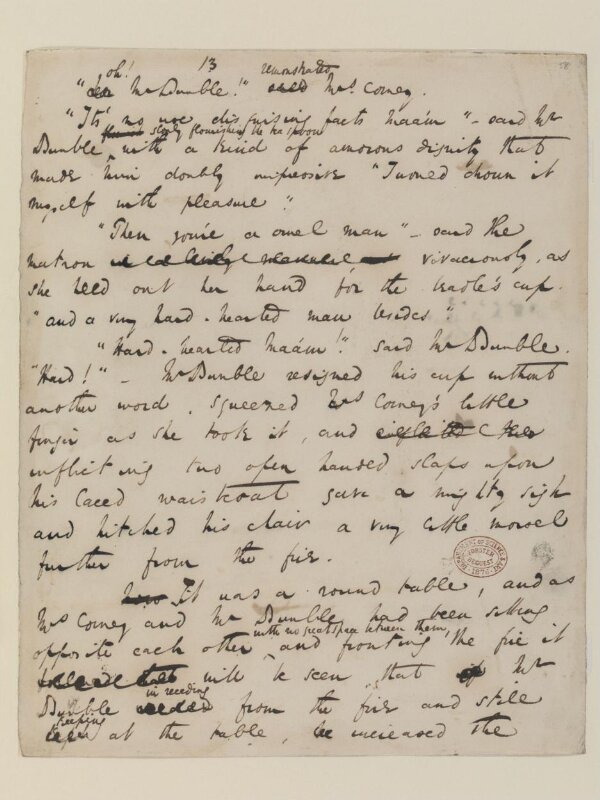 58
13
oh! remonstrated
" Mr Bumble!" said Mrs Corney.
"It's no use disguising facts maa'm" – said Mr
slowly flourishing the teaspoon
Bumble, with a kind of amorous dignity that
made him doubly impressive "I would drown it
myself with pleasure."
"Then you're a cruel man" – said the
matron vivaciously, as
she held out her hand for the beadle's cup.
"and a very hard-hearted man besides."
"Hard-hearted maa'm!" said Mr Bumble.
"Hard!" – Mr Bumble resigned his cup without
another word, squeezed Mrs Corney's little
finger as she took it, and
inflicting two open handed slaps upon
his laced waistcoat gave a mighty sigh
and hitched his chair a very little morsel
further from the fire.
It was a round table, and as
Mrs Corney and Mr Bumble had been sitting
with no great space between them,
opposite each other, and fronting the fire it
will be seen that Mr
in receding
Bumble from the fire and still
keeping
at the table, he increased the
FORSTER
BEQUEST
1876